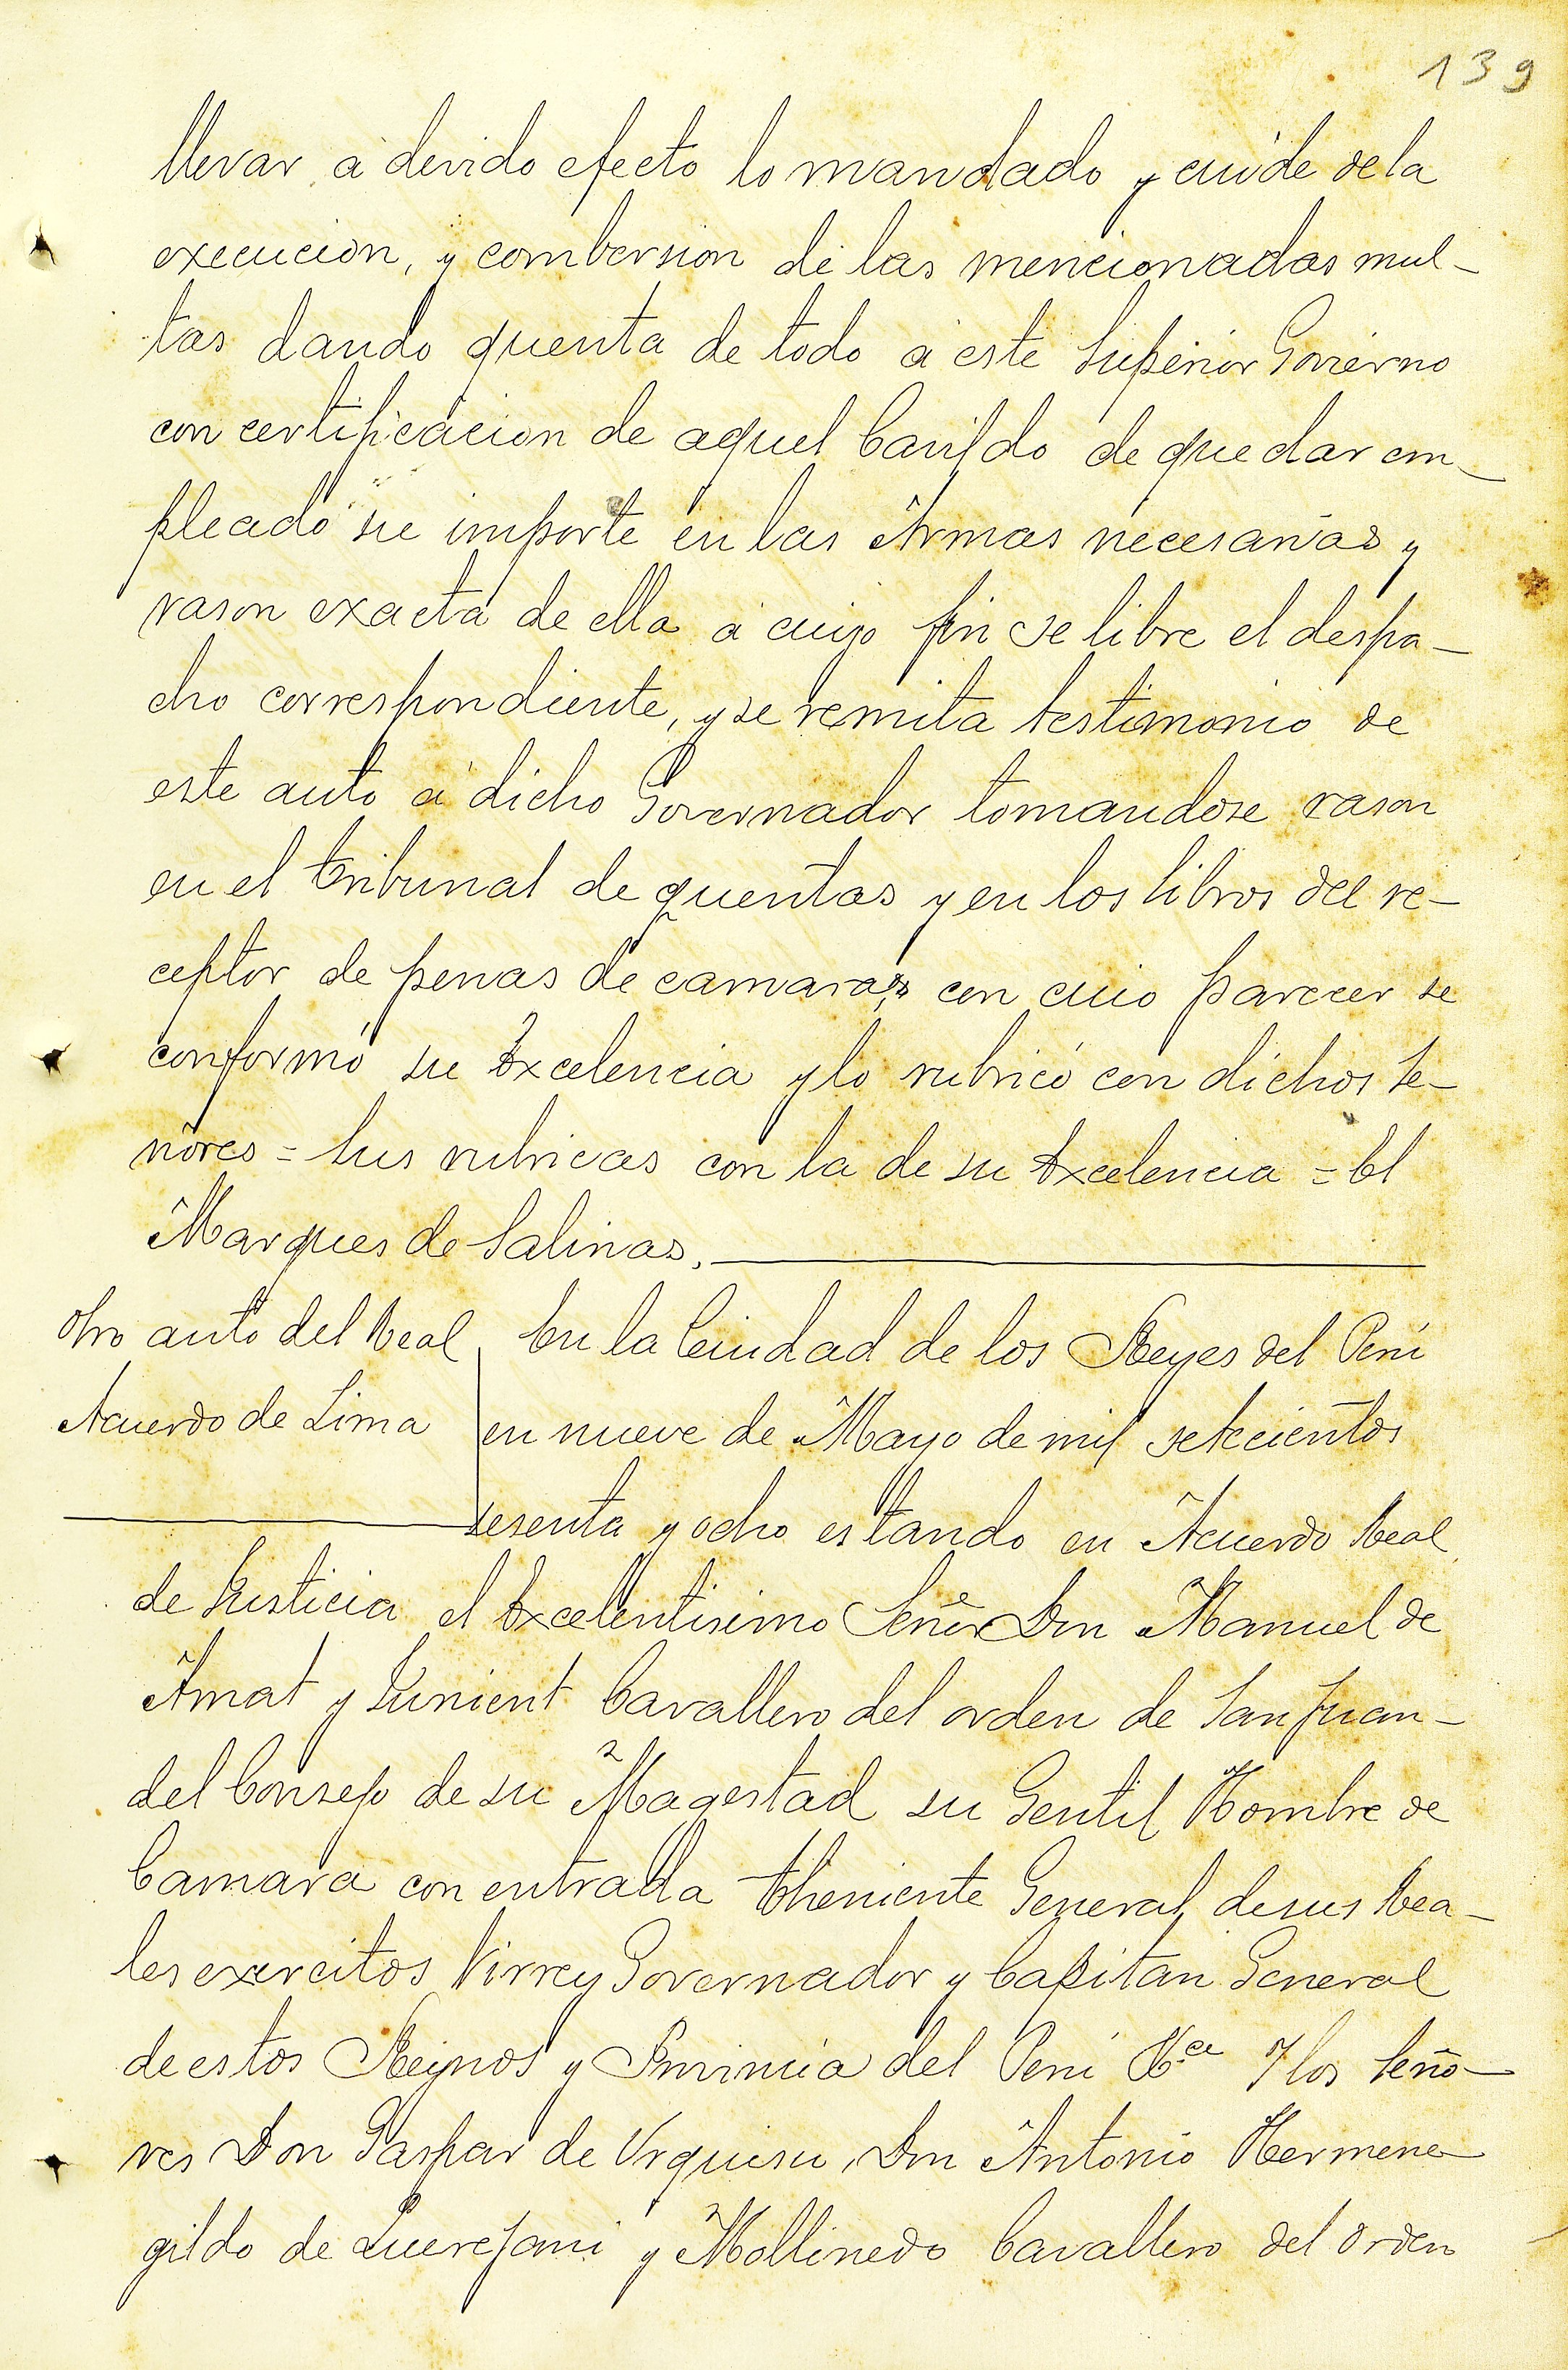 139
llevar a devido efecto lo mandado y cuide de la
execucion, y combersion de las mencionadas mul-
tas dando quenta de todo a este Superior Govierno
con certificacion de aquel Cavildo de quedar em-
pleado su importe en las Armas necesarias y
rason exacta de ella a cuyo fin se libre el despa-
cho correspondiente, y se remita testimonio de
este auto a dicho Governador tomandose rason
en el tribunal de quentas y en los libros del re-
ceptor de penas de camara, con cuio parecer se
conformó su Excelencia y lo rubricó con dichos Se-
ñores = Sus rubricas con la de su Excelencia = El
Marques de Salinas.
Otro auto del Real
Acuerdo de Lima
En la Ciudad de los Reyes del Perú
en nueve de Mayo de mil setecientos
sesenta y ocho estando en Acuerdo Real
de Justicia el Excelentisimo Señor Don Manuel de
Amat y Junient Cavallero del orden de San Juan-
del Consejo de su Magestad su Gentil Hombre de
Camara con entrada Theniente General de sus Rea-
les exercitos Virrey Governador y Capitan General
de estos Reynos y Provincia del Perú &.ca Y los Seño-
res Don Gaspar de Urquisu, Don Antonio Hermene-
gildo de Querejasu y Mollinedo Cavallero del Orden